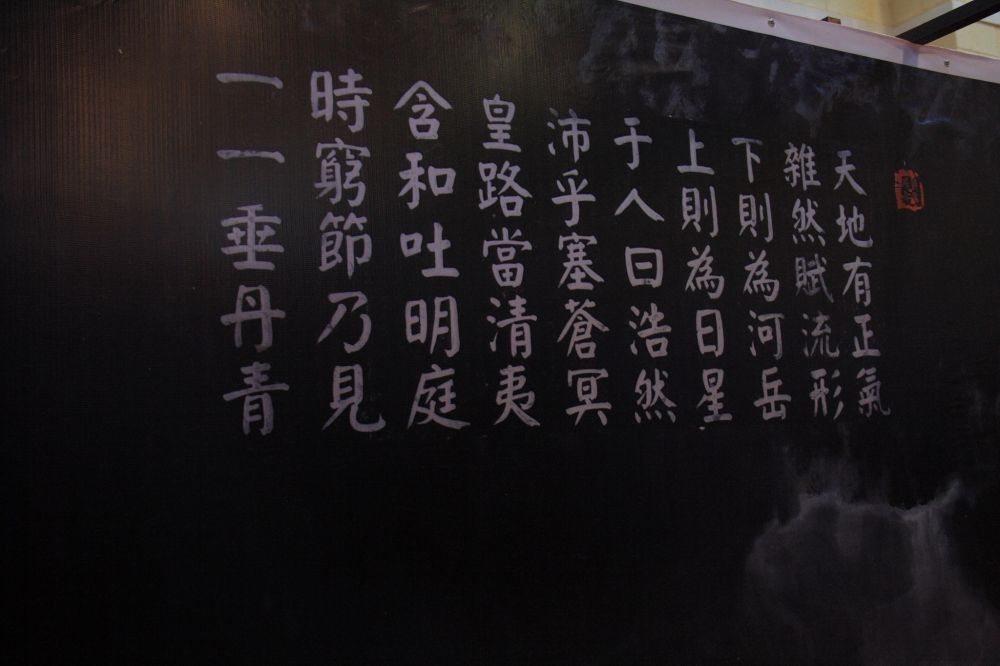 天地有正氣
雜然賦流形
下則為河岳
上則為日星
于人曰浩然
沛乎塞蒼冥
皇路當清夷
含和吐明庭
時窮節乃見
一一垂丹青